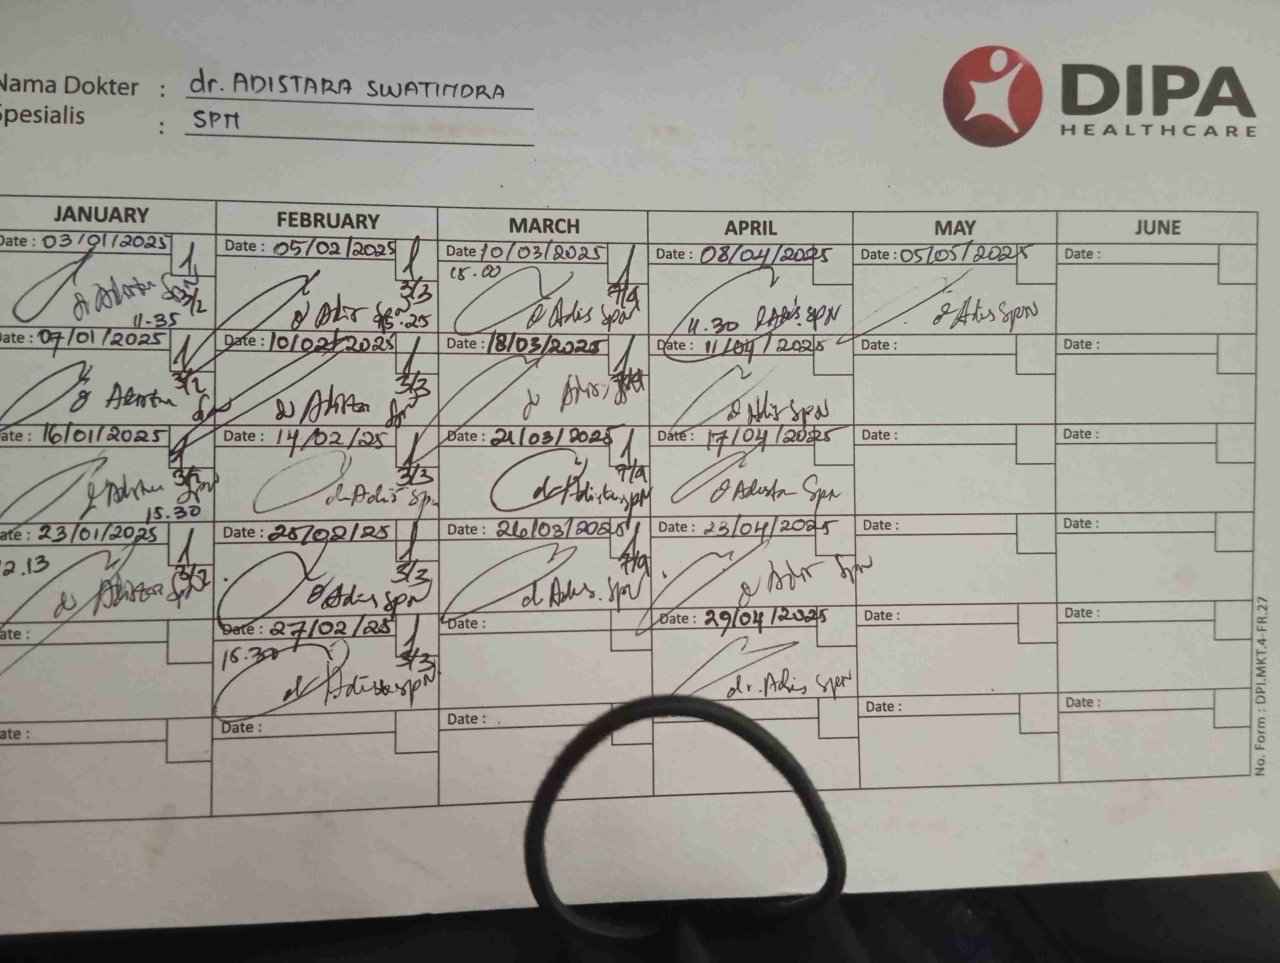 Nama Dokter : dr. ADISTARA SWATINDRA
Spesialis : SPN
DIPA
HEALTHCARE
JANUARY FEBRUARY MARCH APRIL MAY JUNE
Date : 03/01/2025 1 Date : 05/02/2025 1 Date : 10/03/2025 1 Date : 08/04/2025 Date : 05/05/2025 Date :
15.00
3/2 3/3 7/4
dr Adis SpN dr Adis SpN dr Adis SpN dr Adis SpN
11.35 15.25 11.30
Date : 07/01/2025 1 Date : 10/02/2025 1 Date : 18/03/2025 1 Date : 11/04/2025 Date : Date :
3/2 3/3 7/4
dr Adis SpN
Date : 16/01/2025 1 Date : 14/02/25 1 Date : 21/03/2025 1 Date : 17/04/2025 Date : Date :
3/2 3/3 7/4
dr Adis SpN dr Adistara SpN dr Adistara SpN
15.30
Date : 23/01/2025 1 Date : 25/02/25 1 Date : 26/03/2025 1 Date : 23/04/2025 Date : Date :
12.13 3/2 3/3 7/4
dr Adistara SpN dr Adis SpN dr Adis. SpN dr Adis SpN
Date : Date : 27/02/25 1 Date : Date : 29/04/2025 Date : Date :
15.30 3/3
dr Adistara SpN dr. Adis SpN
Date : Date : Date : Date : Date : Date :
No. Form : DPI.MKT.4-FR.27